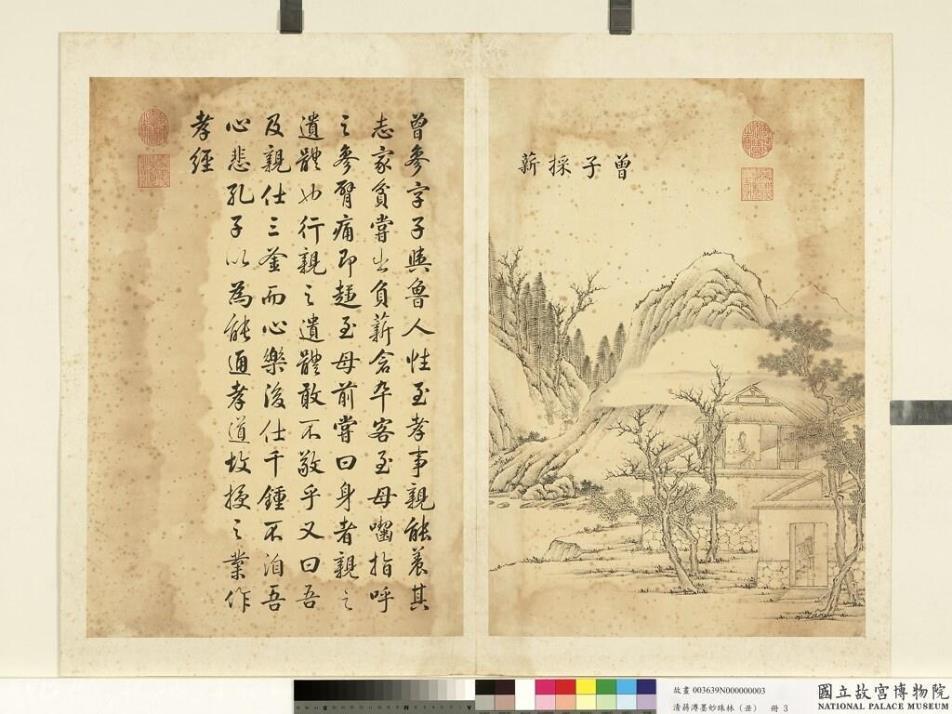 曾子採薪
曾參字子輿魯人性至孝事親能養其
志家貧嘗出負薪舍卒客至母囓指呼
之參臂痛即趨至母前嘗曰身者親之
遺體也行親之遺體敢不敬乎又曰吾
及親仕三釜而心樂後仕千鍾不洎吾
心悲孔子以為能通孝道故授之業作
孝經
故畫 003639N000000003
清蔣溥墨妙珠林（丑） 冊 3
國立故宮博物院
NATIONAL PALACE MUSEUM